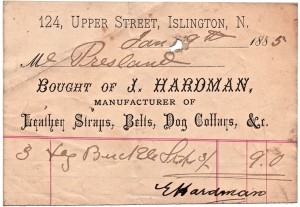 124, UPPER STREET, ISLINGTON, N.
Jan 9th 1885
Mr Presland
BOUGHT OF J. HARDMAN,
MANUFACTURER OF
Leather Straps, Belts, Dog Collars, &c.
3 Leg Buckle Straps 3/ 9.0
E Hardman